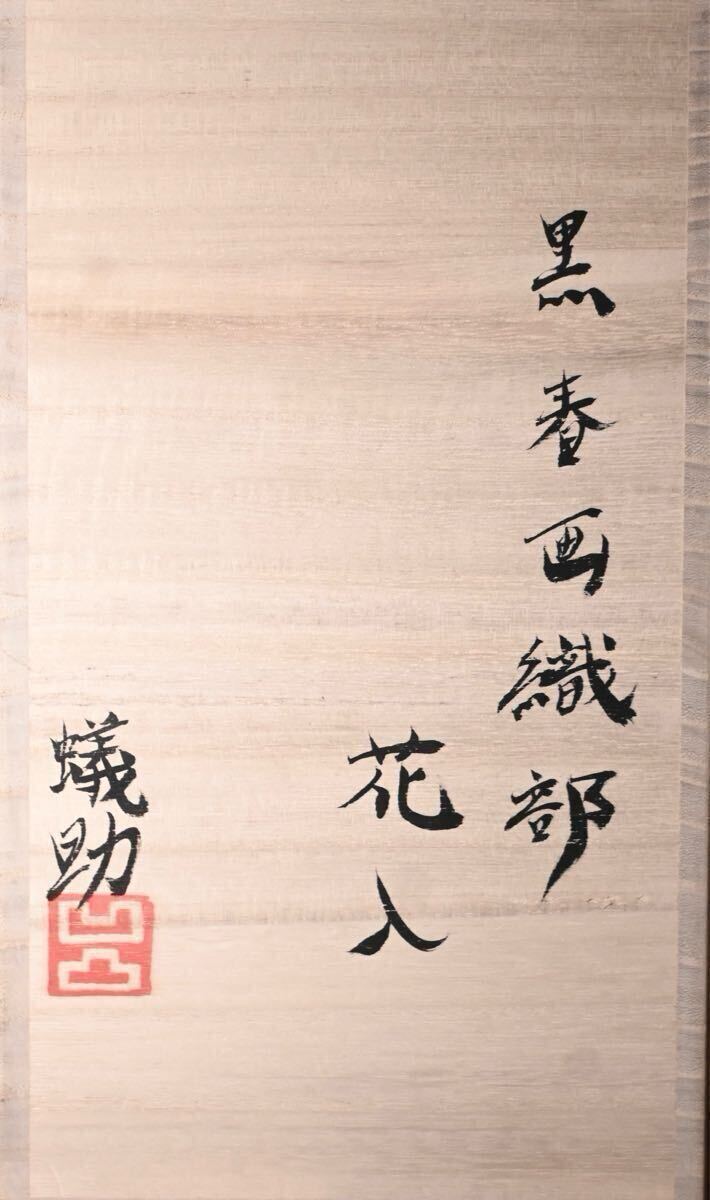 黒春画織部
花入
蟻助
凹凸